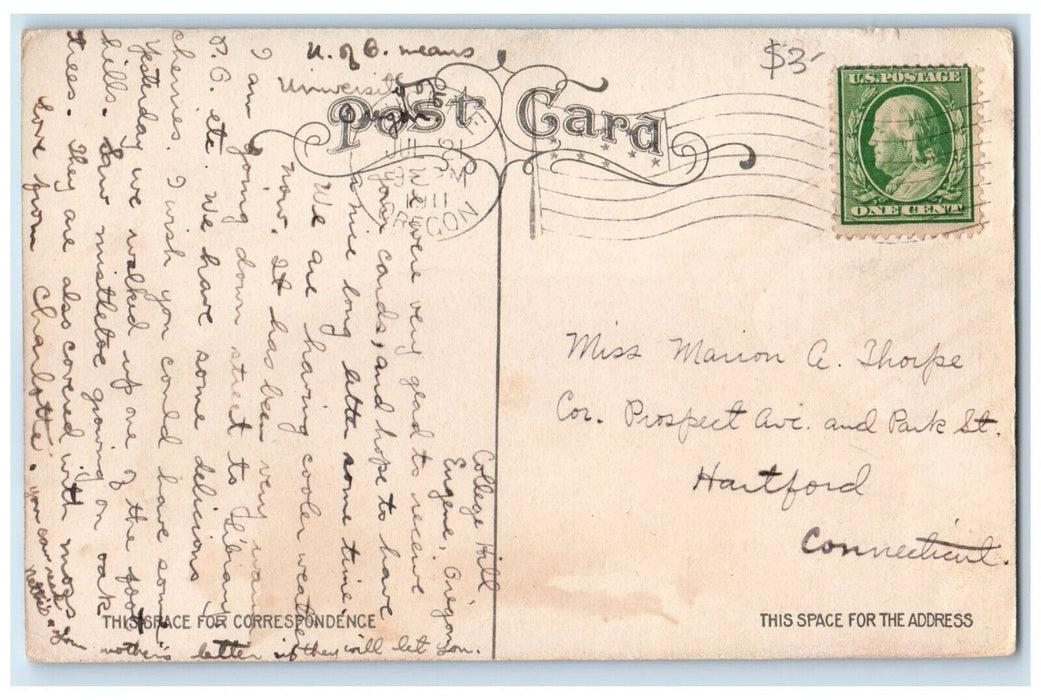 U. of O. means
University of
Oregon
$3
Post Card
EUGENE
9 PM
1911
OREGON
U.S. POSTAGE
ONE CENT
College Hill
Eugene, Oregon
We were very glad to receive
your cards, and hope to have
a nice long letter some time.
We are having cooler weather
now. It has been very warm.
I am going down street to library
P.O. etc. We have some delicious
cherries. I wish you could have some.
Yesterday we walked up one of the foot
hills. Saw mistletoe growing on oak
trees. They are also covered with moss.
Love from Charlotte.
you can read
Nettie's & your
mother's letter if they will let you.
Miss Marion A. Thorpe
Cor. Prospect Ave. and Park St.
Hartford
Connecticut.
THIS SPACE FOR CORRESPONDENCE
THIS SPACE FOR THE ADDRESS